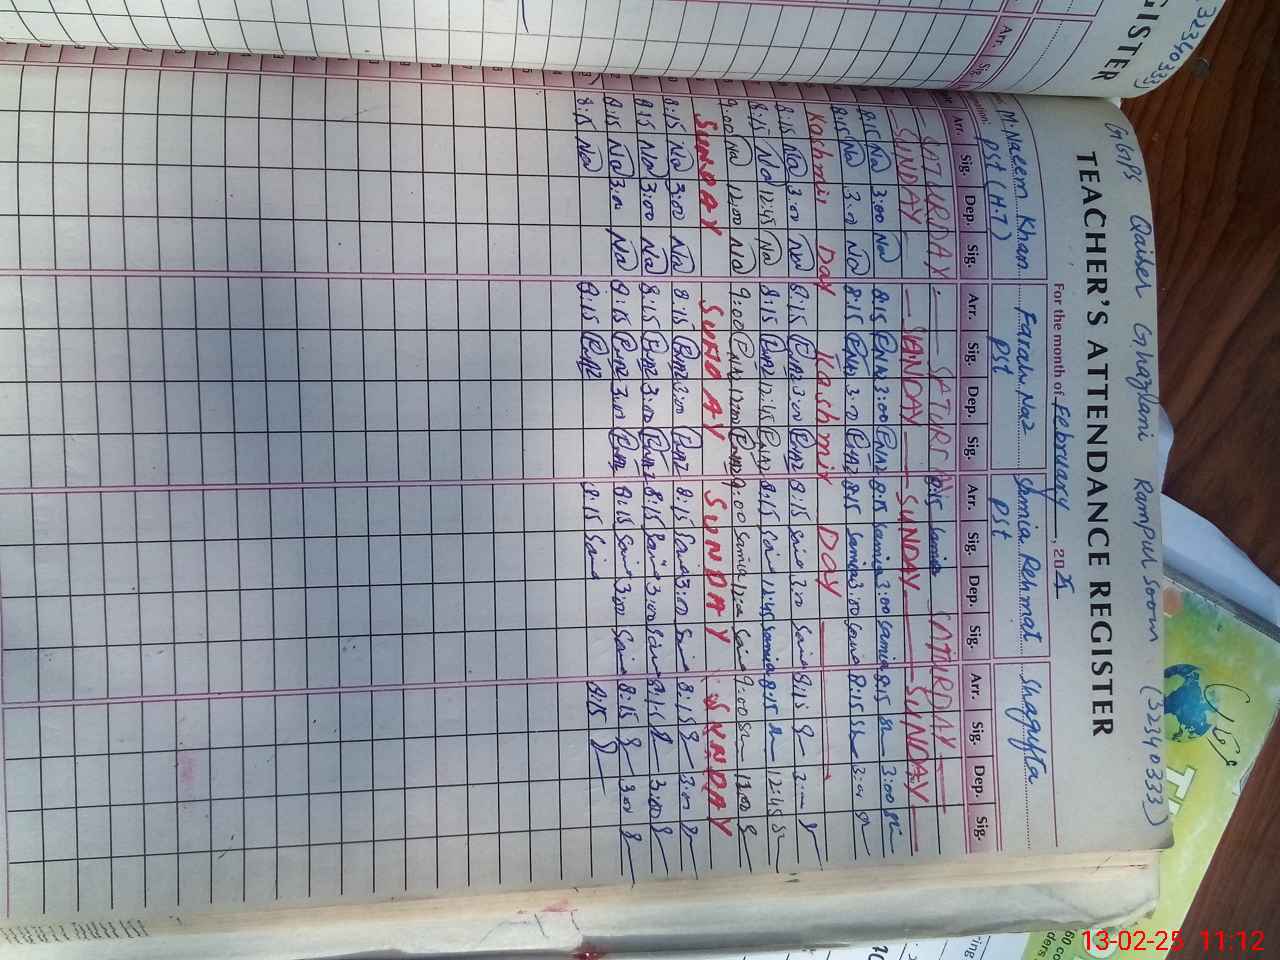 GGPS Qaiser Ghazlani Rampur Soom (32340333)
TEACHER'S ATTENDANCE REGISTER
For the month of February, 2025
M. Naeem Khan Farah Naz Samia Rehmat Shagufta
PST (H.T) PST PST
Arr. Sig. Dep. Sig. Arr. Sig. Dep. Sig. Arr. Sig. Dep. Sig. Arr. Sig. Dep. Sig.
SATURDAY 8:15 Samia SATURDAY
SUNDAY SUNDAY SUNDAY SUNDAY
8:15 Na 3:00 Na 8:15 3:00 8:15 Samia 3:00 Samia 8:15 3:00
8:15 Na 3:0 Na 8:15 3:0 8:15 Samia 3:00 8:15 3:0
Kashmir Day Kashmir Day
8:15 Na 3:00 Na 8:15 3:00 8:15 3:00 8:15 3:
8:15 Na 12:45 Na 8:15 12:45 8:15 12:45 Samia 8:15 12:45
9:00 Na 12:00 Na 9:00 12:00 9:00 Samia 12:0 9:00 12:00
SUNDAY SUNDAY SUNDAY SUNDAY
8:15 Na 3:00 Na 8:15 3:00 8:15 3:00 8:15 3:00
8:15 Na 3:00 Na 8:15 3:00 8:15 3:00 8:15 3:00
8:15 Na 3:0 Na 8:15 3:0 8:15 3:0 8:15 3:0
8:15 Na 8:15 8:15 8:15
GISTER
32340333)
Arr. Sig.
13-02-25 11:12